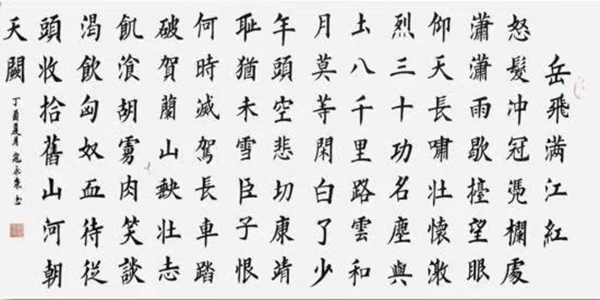 岳飛满江紅
怒髮冲冠憑欄處
瀟瀟雨歇檯望眼
仰天長嘯壮懷激
烈三十功名塵與
土八千里路雲和
月莫等閑白了少
年頭空悲切康靖
耻猶未雪臣子恨
何時滅駕長車踏
破賀蘭山缺壮志
飢湌胡虜肉笑談
渴飲匈奴血待従
頭收拾舊山河朝
天闕
丁酉夏月